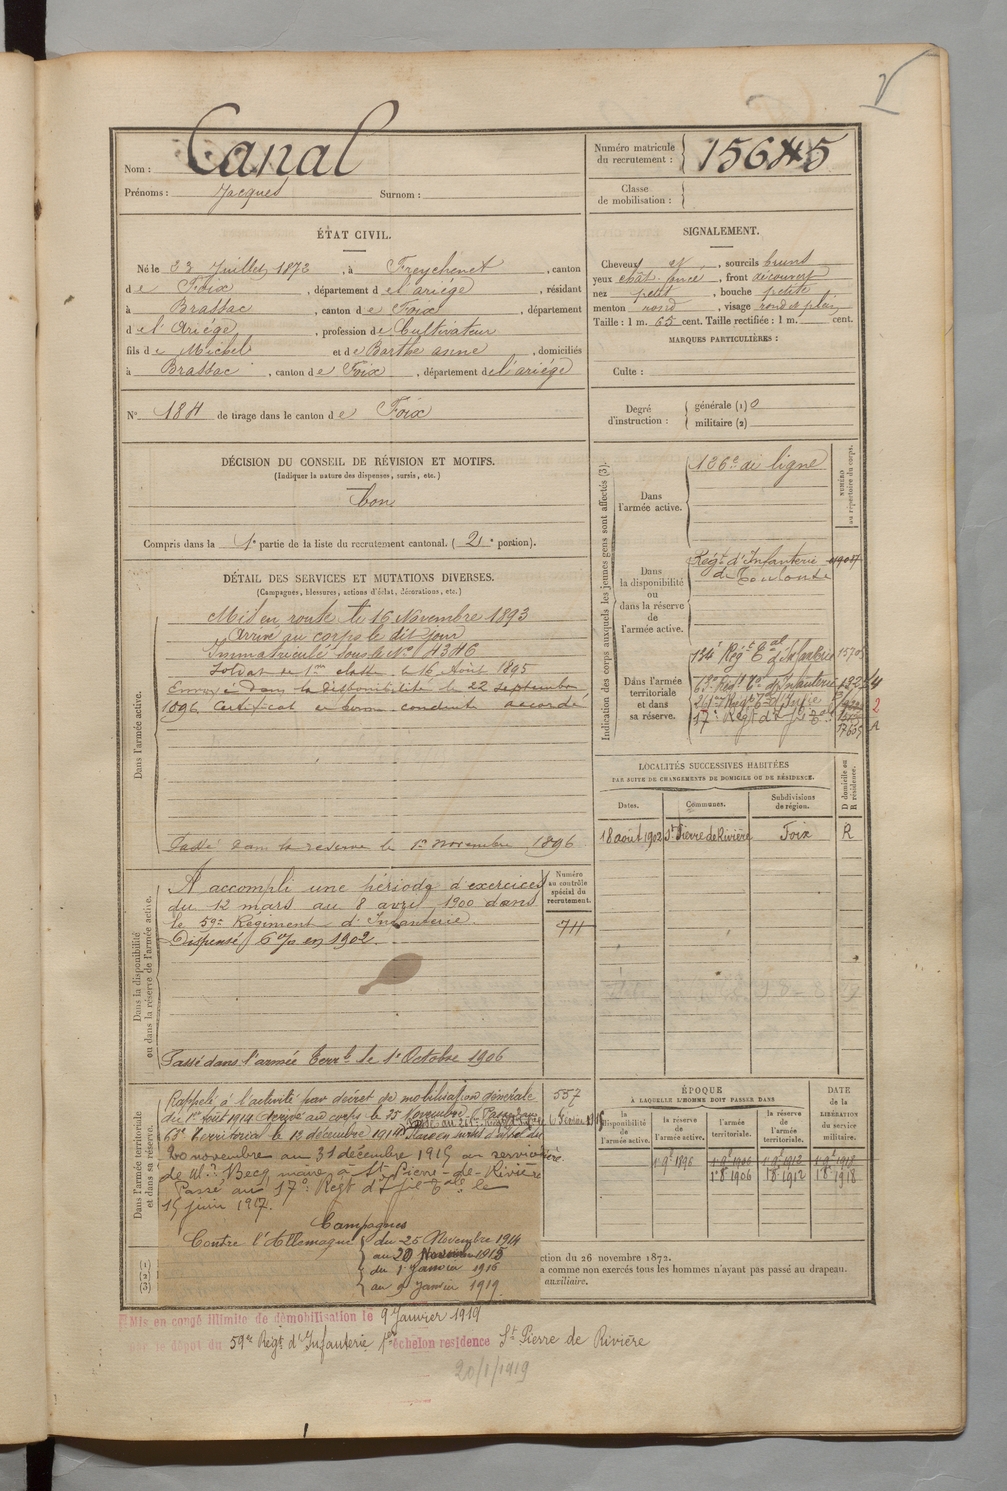 Nom : Canal
Prénoms : Jacques Surnom :
Numéro matricule
du recrutement :
Classe
de mobilisation :
ÉTAT CIVIL.
Né le Juillet, à Freychenet, canton
de Foix, département de l'ariége, résidant
à Brassac, canton de Foix, département
de l'Ariége, profession de Cultivateur
fils de Michel et de Barthe anne, domiciliés
à Brassac, canton de Foix, département de l'ariége
SIGNALEMENT.
Cheveux et, sourcils bruns
yeux chât. foncé, front découvert
nez petit, bouche petite
menton rond, visage rond et plein
Taille : 1 m. 65 cent. Taille rectifiée : 1 m. cent.
MARQUES PARTICULIÈRES :
Culte :
N° 184 de tirage dans le canton de Foix
Degré
d'instruction :
générale (1) 0
militaire (2)
DÉCISION DU CONSEIL DE RÉVISION ET MOTIFS.
(Indiquer la nature des dispenses, sursis, etc.)
bon
Compris dans la 1e partie de la liste du recrutement cantonal. ( 2 e portion).
DÉTAIL DES SERVICES ET MUTATIONS DIVERSES.
(Campagnes, blessures, actions d'éclat, décorations, etc.)
Dans l'armée active.
Mis en route le 16 Novembre 1893
Arrivé au corps le dit jour
Immatriculé sous le N° 4346
Soldat de 1re classe le 16 Août 1895
Envoyé dans la disponibilité le 22 septembre
1896 Certificat de bonne conduite accordé
Passé dans la réserve le 1er novembre 1896
Dans la disponibilité
ou dans la réserve de l'armée active.
A accompli une période d'exercices
du 12 mars au 8 avril 1900 dans
le 59e Régiment d'Infanterie.
Dispensé 6 % en 1902.
Passé dans l'armée terrle le 1er Octobre 1906
Numéro
au contrôle
spécial du
recrutement.
711
557
Dans l'armée territoriale
et dans sa réserve.
Rappelé à l'activité par décret de mobilisation générale
du 1er Août 1914 Arrivé au corps le 25 Novembre. Passé au
63e Territorial le 12 décembre 1914
20 novembre au 31 décembre 1915 au service
de Mr Becq maire à St Pierre-de-Rivière
Passé au 17e Regt d'
15 juin 1917.
Campagnes
Contre l'Allemagne du 25 Novembre 1914
au 20 Novembre 1915
du 1er Janvier 1916
au 9 Janvier 1919.
(1)
(2)
(3)
Indication des corps auxquels les jeunes gens sont affectés (3).
NUMÉRO
au répertoire du corps.
Dans
l'armée active.
126e de ligne
Dans
la disponibilité
ou
dans la réserve
de
l'armée active.
Régt d'Infanterie
de Toulouse
Dans l'armée
territoriale
et dans
sa réserve.
134e Régt Tal d'Infanterie
63e Régt Tal d'Infanterie
17e Régt
LOCALITÉS SUCCESSIVES HABITÉES
PAR SUITE DE CHANGEMENTS DE DOMICILE OU DE RÉSIDENCE.
Dates. Communes. Subdivisions
de région.
D domicile ou
R résidence.
18 août 1902 St Pierre de Rivière Foix R
ÉPOQUE
À LAQUELLE L'HOMME DOIT PASSER DANS
la
disponibilité
de
l'armée active.
la réserve
de
l'armée active.
l'armée
territoriale.
la réserve
de
l'armée
territoriale.
DATE
de la
LIBÉRATION
du service
militaire.
1 9bre 1896 1 9bre 1906 1 9bre 1912 1 9bre 1918
1 8 1906 1 8 1912 1 8 1918
ction du 26 novembre 1872.
a comme non exercés tous les hommes n'ayant pas passé au drapeau.
auxiliaire.
Mis en congé illimité de démobilisation le 9 Janvier 1919
par le dépôt du 59me Régt d'Infanterie 1er échelon résidence St Pierre de Rivière
20/1/1919